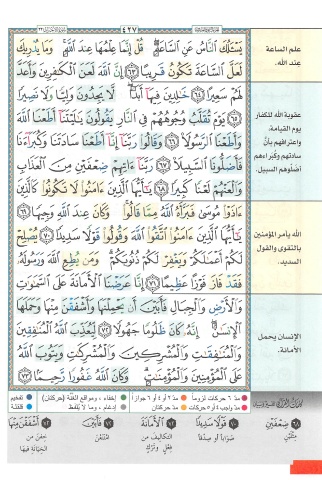 ٤٢٧
يَسْـَٔلُكَ ٱلنَّاسُ عَنِ ٱلسَّاعَةِ ۖ قُلْ إِنَّمَا عِلْمُهَا عِندَ ٱللَّهِ ۚ وَمَا يُدْرِيكَ
لَعَلَّ ٱلسَّاعَةَ تَكُونُ قَرِيبًا ٦٣ إِنَّ ٱللَّهَ لَعَنَ ٱلْكَٰفِرِينَ وَأَعَدَّ
لَهُمْ سَعِيرًا ٦٤ خَٰلِدِينَ فِيهَآ أَبَدًا ۖ لَّا يَجِدُونَ وَلِيًّا وَلَا نَصِيرًا
٦٥ يَوْمَ تُقَلَّبُ وُجُوهُهُمْ فِي ٱلنَّارِ يَقُولُونَ يَٰلَيْتَنَآ أَطَعْنَا ٱللَّهَ
وَأَطَعْنَا ٱلرَّسُولَا۠ ٦٦ وَقَالُوا۟ رَبَّنَآ إِنَّآ أَطَعْنَا سَادَتَنَا وَكُبَرَآءَنَا
فَأَضَلُّونَا ٱلسَّبِيلَا۠ ٦٧ رَبَّنَآ ءَاتِهِمْ ضِعْفَيْنِ مِنَ ٱلْعَذَابِ
وَٱلْعَنْهُمْ لَعْنًا كَبِيرًا ٦٨ يَٰٓأَيُّهَا ٱلَّذِينَ ءَامَنُوا۟ لَا تَكُونُوا۟ كَٱلَّذِينَ
ءَاذَوْا۟ مُوسَىٰ فَبَرَّأَهُ ٱللَّهُ مِمَّا قَالُوا۟ ۚ وَكَانَ عِندَ ٱللَّهِ وَجِيهًا ٦٩
يَٰٓأَيُّهَا ٱلَّذِينَ ءَامَنُوا۟ ٱتَّقُوا۟ ٱللَّهَ وَقُولُوا۟ قَوْلًا سَدِيدًا ٧٠ يُصْلِحْ
لَكُمْ أَعْمَٰلَكُمْ وَيَغْفِرْ لَكُمْ ذُنُوبَكُمْ ۗ وَمَن يُطِعِ ٱللَّهَ وَرَسُولَهُۥ
فَقَدْ فَازَ فَوْزًا عَظِيمًا ٧١ إِنَّا عَرَضْنَا ٱلْأَمَانَةَ عَلَى ٱلسَّمَٰوَٰتِ
وَٱلْأَرْضِ وَٱلْجِبَالِ فَأَبَيْنَ أَن يَحْمِلْنَهَا وَأَشْفَقْنَ مِنْهَا وَحَمَلَهَا
ٱلْإِنسَٰنُ ۖ إِنَّهُۥ كَانَ ظَلُومًا جَهُولًا ٧٢ لِّيُعَذِّبَ ٱللَّهُ ٱلْمُنَٰفِقِينَ
وَٱلْمُنَٰفِقَٰتِ وَٱلْمُشْرِكِينَ وَٱلْمُشْرِكَٰتِ وَيَتُوبَ ٱللَّهُ
عَلَى ٱلْمُؤْمِنِينَ وَٱلْمُؤْمِنَٰتِ ۗ وَكَانَ ٱللَّهُ غَفُورًا رَّحِيمًا ٧٣
علم الساعة
عند الله.
عقوبة الله للكفار
يوم القيامة،
واعترافهم بأنّ
سادتهم وكبراءهم
أضلّوهم السبيل.
الله يأمر المؤمنين
بالتقوى والقول
السديد.
الإنسان يحمل
الأمانة.
مدّ ٦ حركات لزوماً مدّ ٢ أو ٤ أو ٦ جوازاً إخفاء، ومواقع الغُنَّة (حركتان) تفخيم
مدّ واجب ٤ أو ٥ حركات مدّ حركتان إدغام، وما لا يُلفظ قلقلة
٦٨ ضِعْفَيْنِ
مِثْلَيْنِ
٧٠ قَوْلًا سَدِيدًا
صَوَابًا أو صِدْقًا
٧٢ ٱلْأَمَانَةَ
التكاليف من
فِعْلٍ وتَرْكٍ
٧٢ فَأَبَيْنَ
امْتَنَعْنَ
٧٢ أَشْفَقْنَ مِنْهَا
خِفْنَ من
الخِيَانَةِ فِيهَا